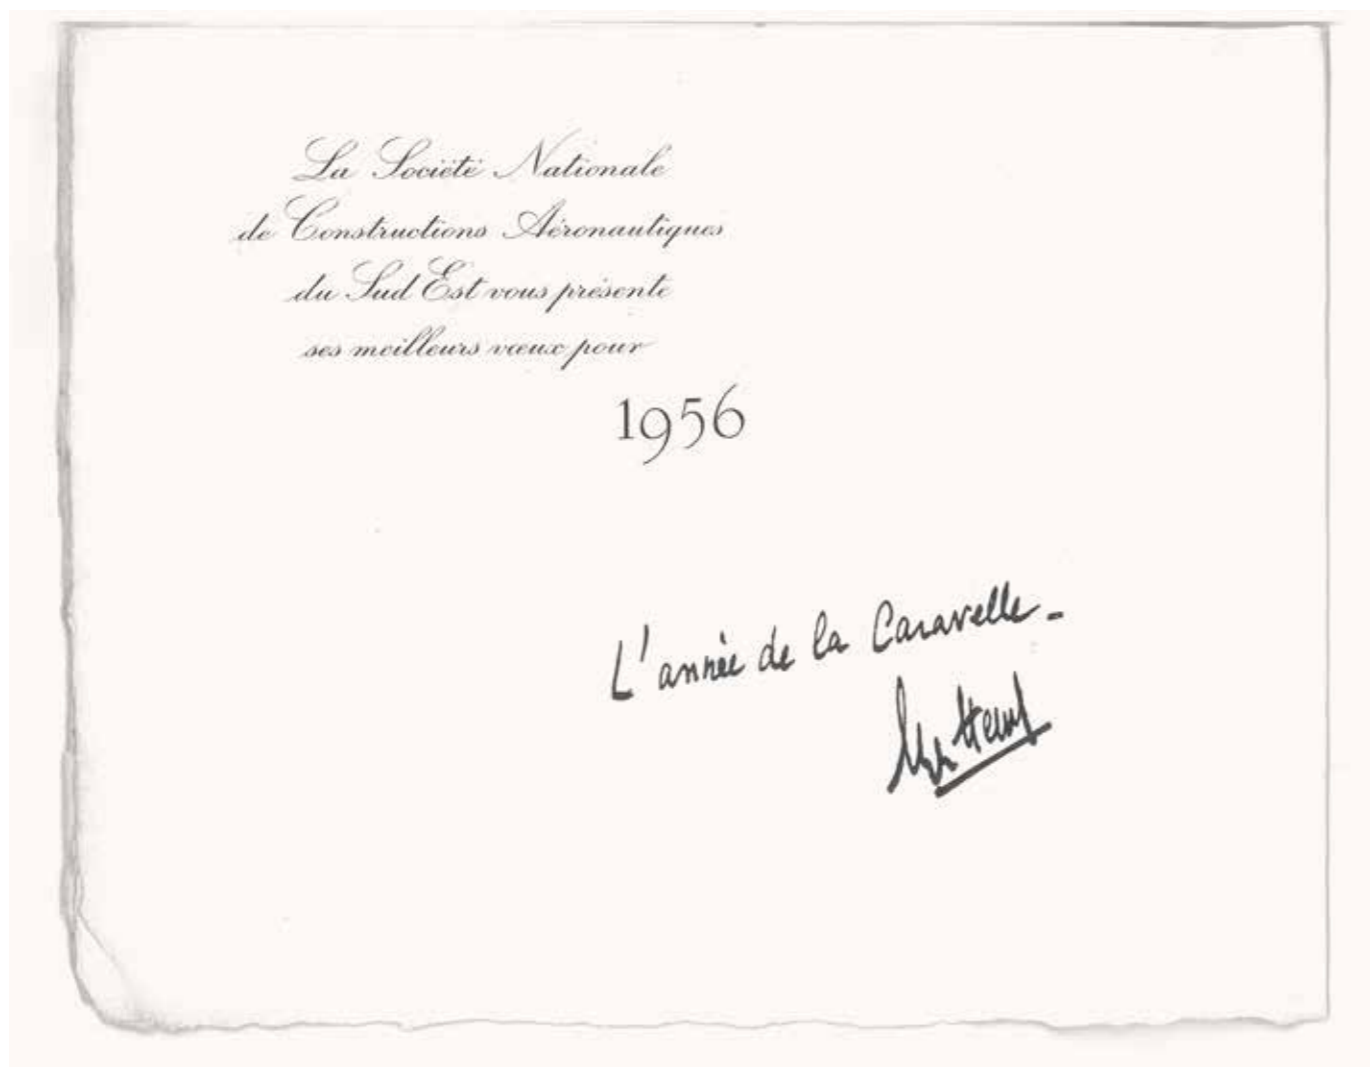 La Société Nationale
de Constructions Aéronautiques
du Sud Est vous présente
ses meilleurs vœux pour
1956
L'année de la Caravelle -